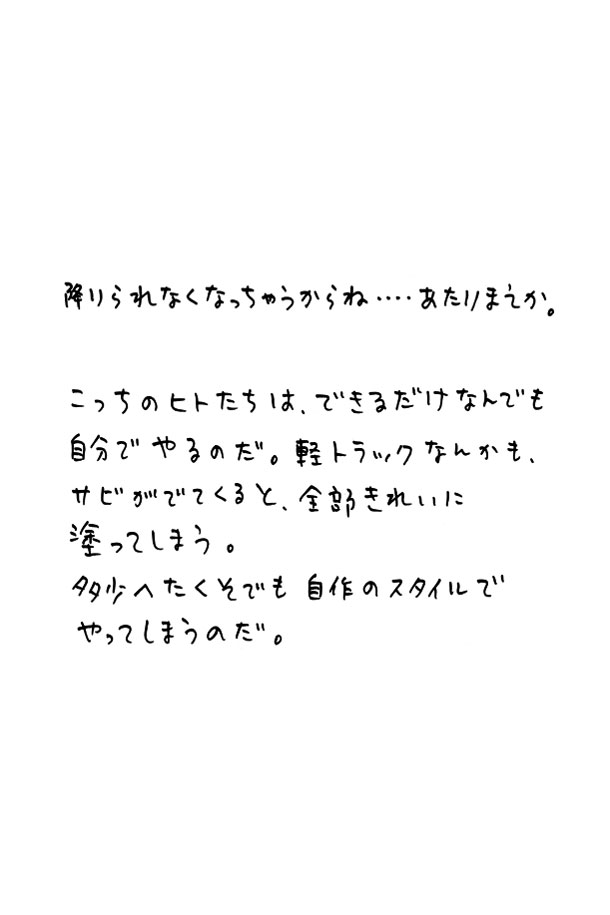 降りられなくなっちゃうからね‥‥あたりまえか。
こっちのヒトたちは、できるだけなんでも
自分でやるのだ。軽トラックなんかも、
サビがでてくると、全部きれいに
塗ってしまう。
多少ヘたくそでも自作のスタイルで
やってしまうのだ。